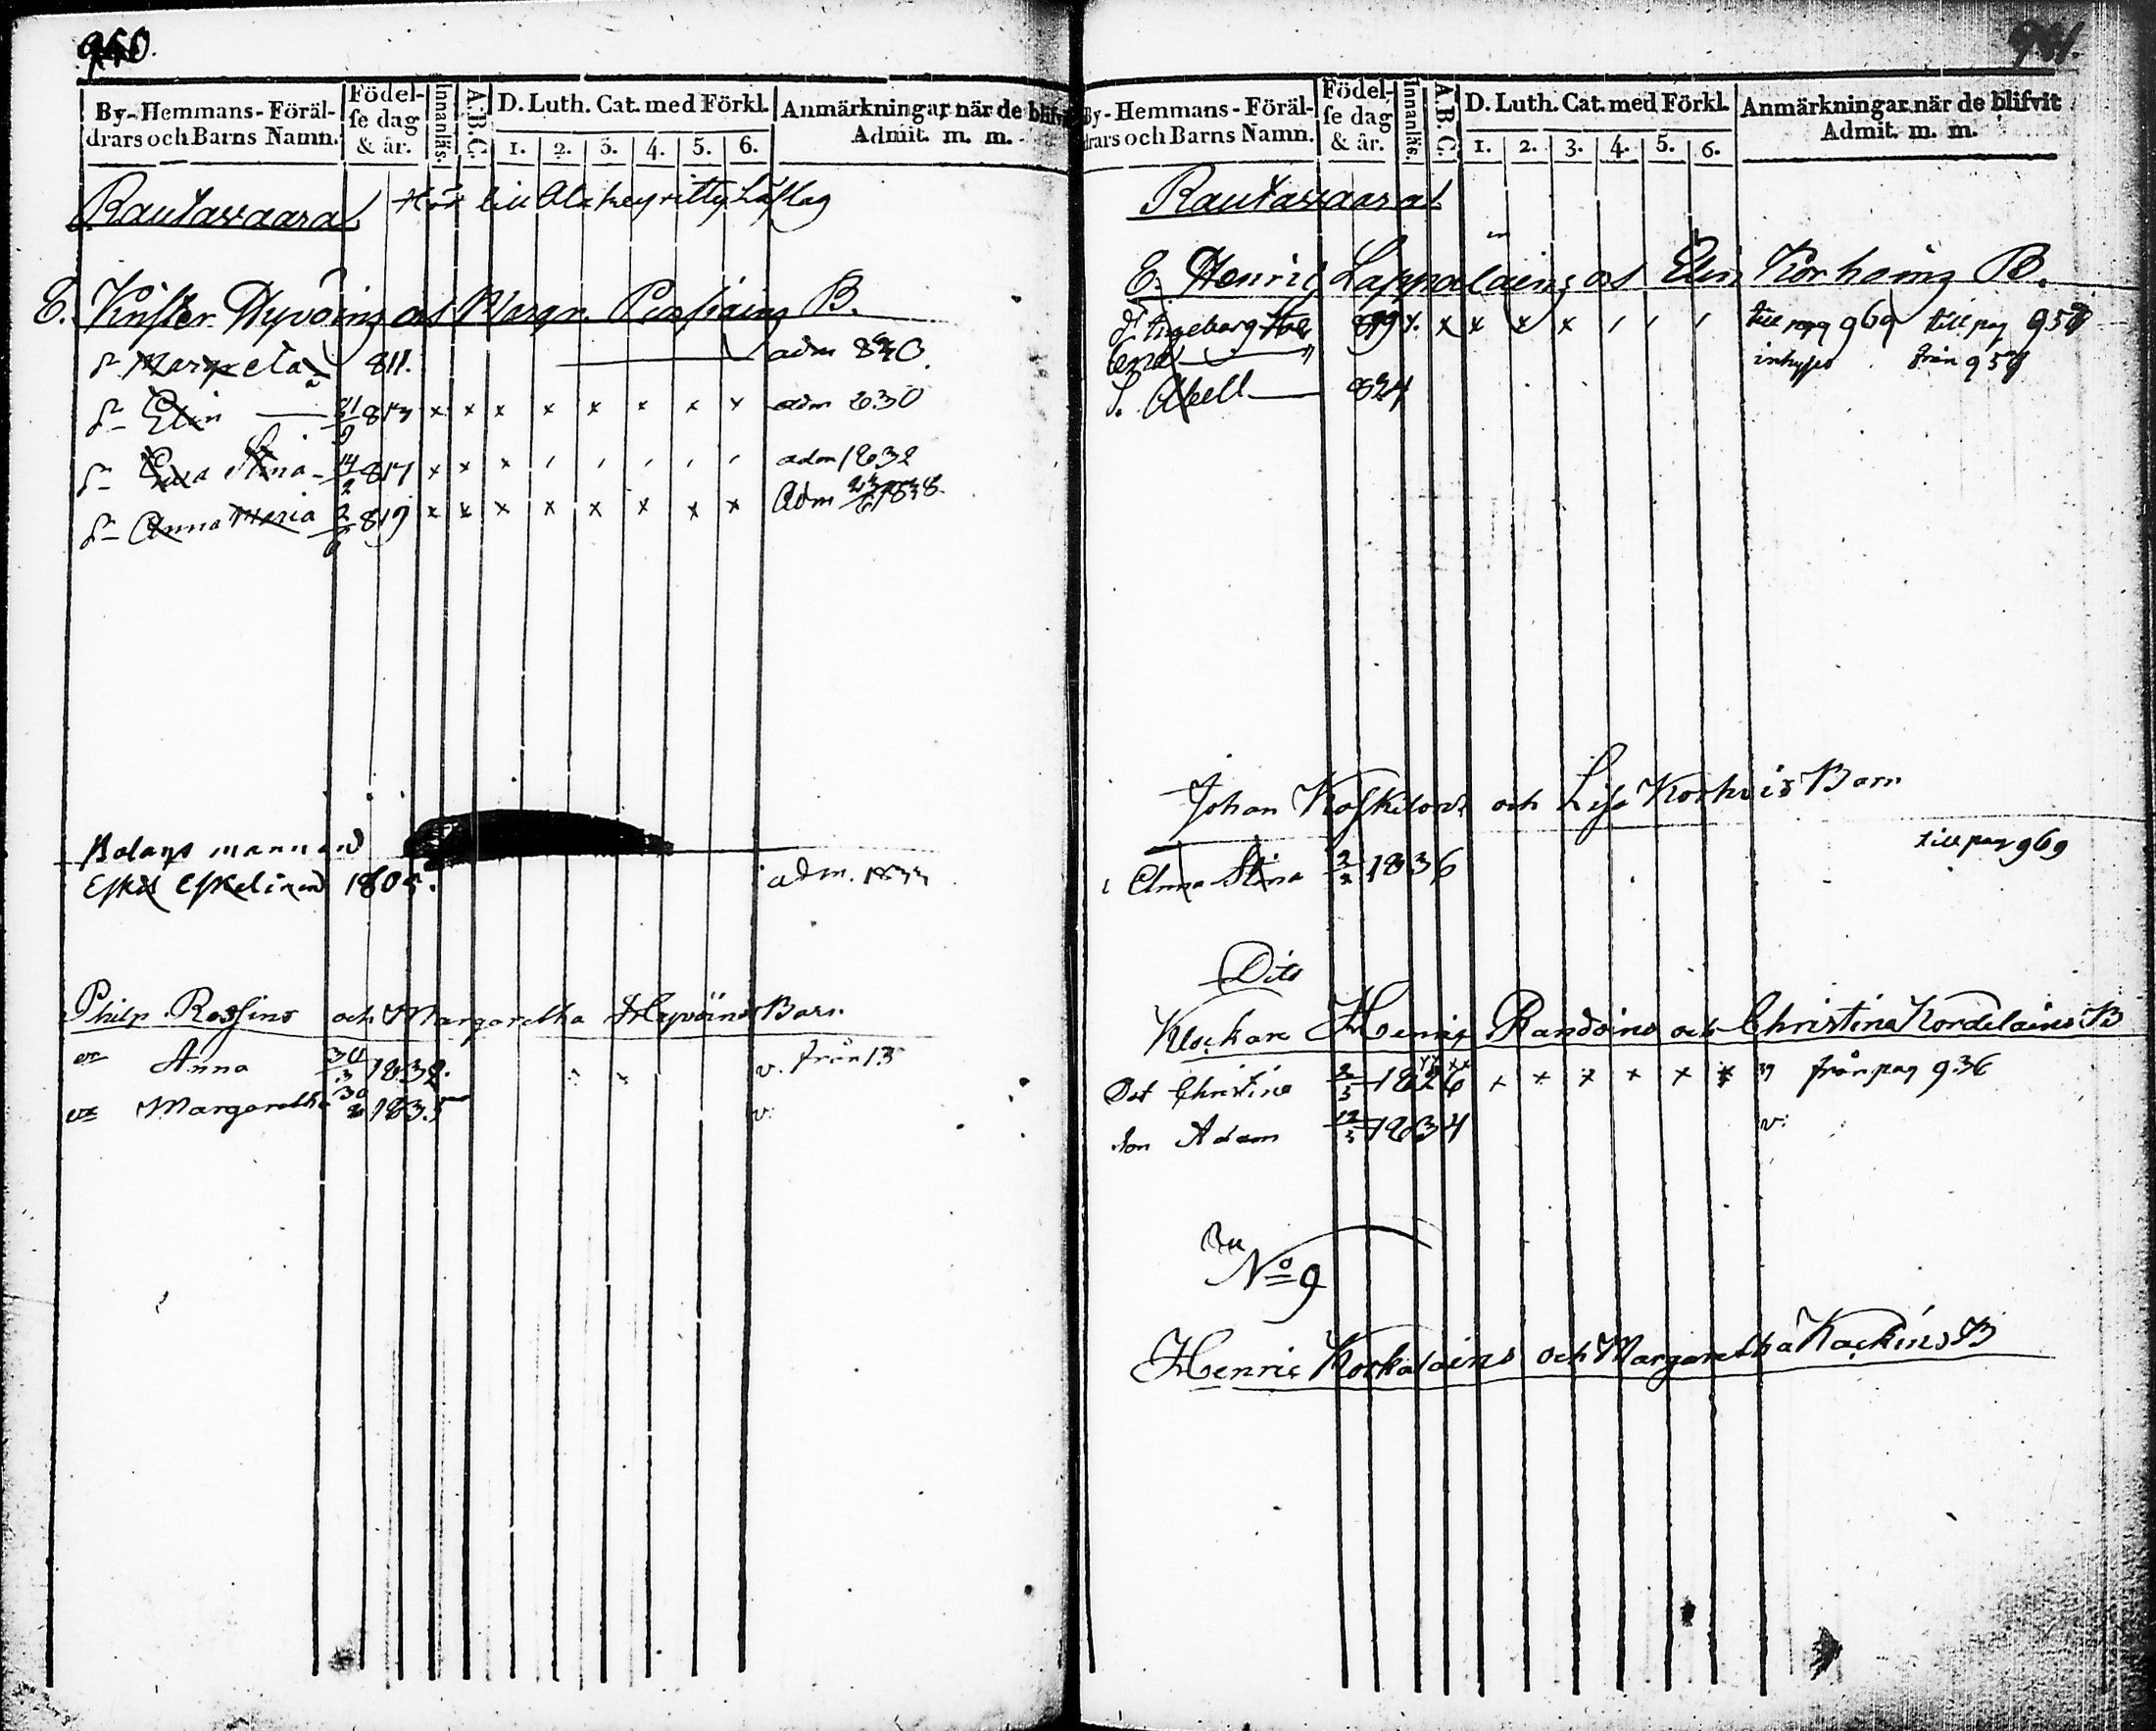 960.
By-Hemmans-Föräl-
drars och Barns Namn.
Födel-
se dag
& år.
Innanläs.
A.B.C.
D. Luth. Cat. med Förkl.
1. 2. 3. 4. 5. 6.
Anmärkningar, när de blifvit
Admit. m. m.
Rautavaara Hör till Alakeyritty
E. Hyvöin och Margr. B.
Margreta 811. adm 830.
Elin 21/9 813 x x x x x x x x adm 830
Eva Stina 14/2 817 x x x adm 1832
Anna Maria 819 x x x x x x x x Adm 1838.
Bolags mannen
Eskil Eskelinen 1805. adm. 1833
Philip Rossins och Margaretha Hyvöins Barn
Anna 30/3 1832. v. från 13
Margaretha 1835 v:
961.
By-Hemmans-Föräl-
drars och Barns Namn.
Födel-
se dag
& år.
Innanläs.
A.B.C.
D. Luth. Cat. med Förkl.
1. 2. 3. 4. 5. 6.
Anmärkningar, när de blifvit
Admit. m. m.
Rautavaara
E. Henric Lappalain och Elin Korhoin B.
Ingeborg x x x x till pag 969 till pag 957
Lena inhyses från 957
S. Abell 824
Johan och Lisa Barn
Anna Stina 1836 till pag 969
Dito
Klockare Henric och Christina Kordelains B
Dot Christina 2/5 1826 x x x x x x från pag 936
Son Adam 12/5 1834 v:
No 9
Henric Korkalains och Margaretha B